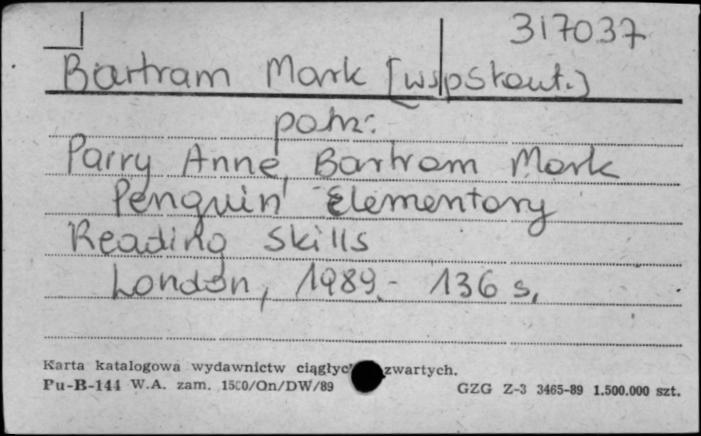 317037
Bartram Mark [współaut.]
patrz:
Parry Anne, Bartram Mark
Penguin Elementary
Reading Skills
London, 1989. - 136 s.
Karta katalogowa wydawnictw ciągłyc zwartych.
Pu-B-144 W.A. zam. 1500/On/DW/89
GZG Z-3 3465-89 1.500.000 szt.